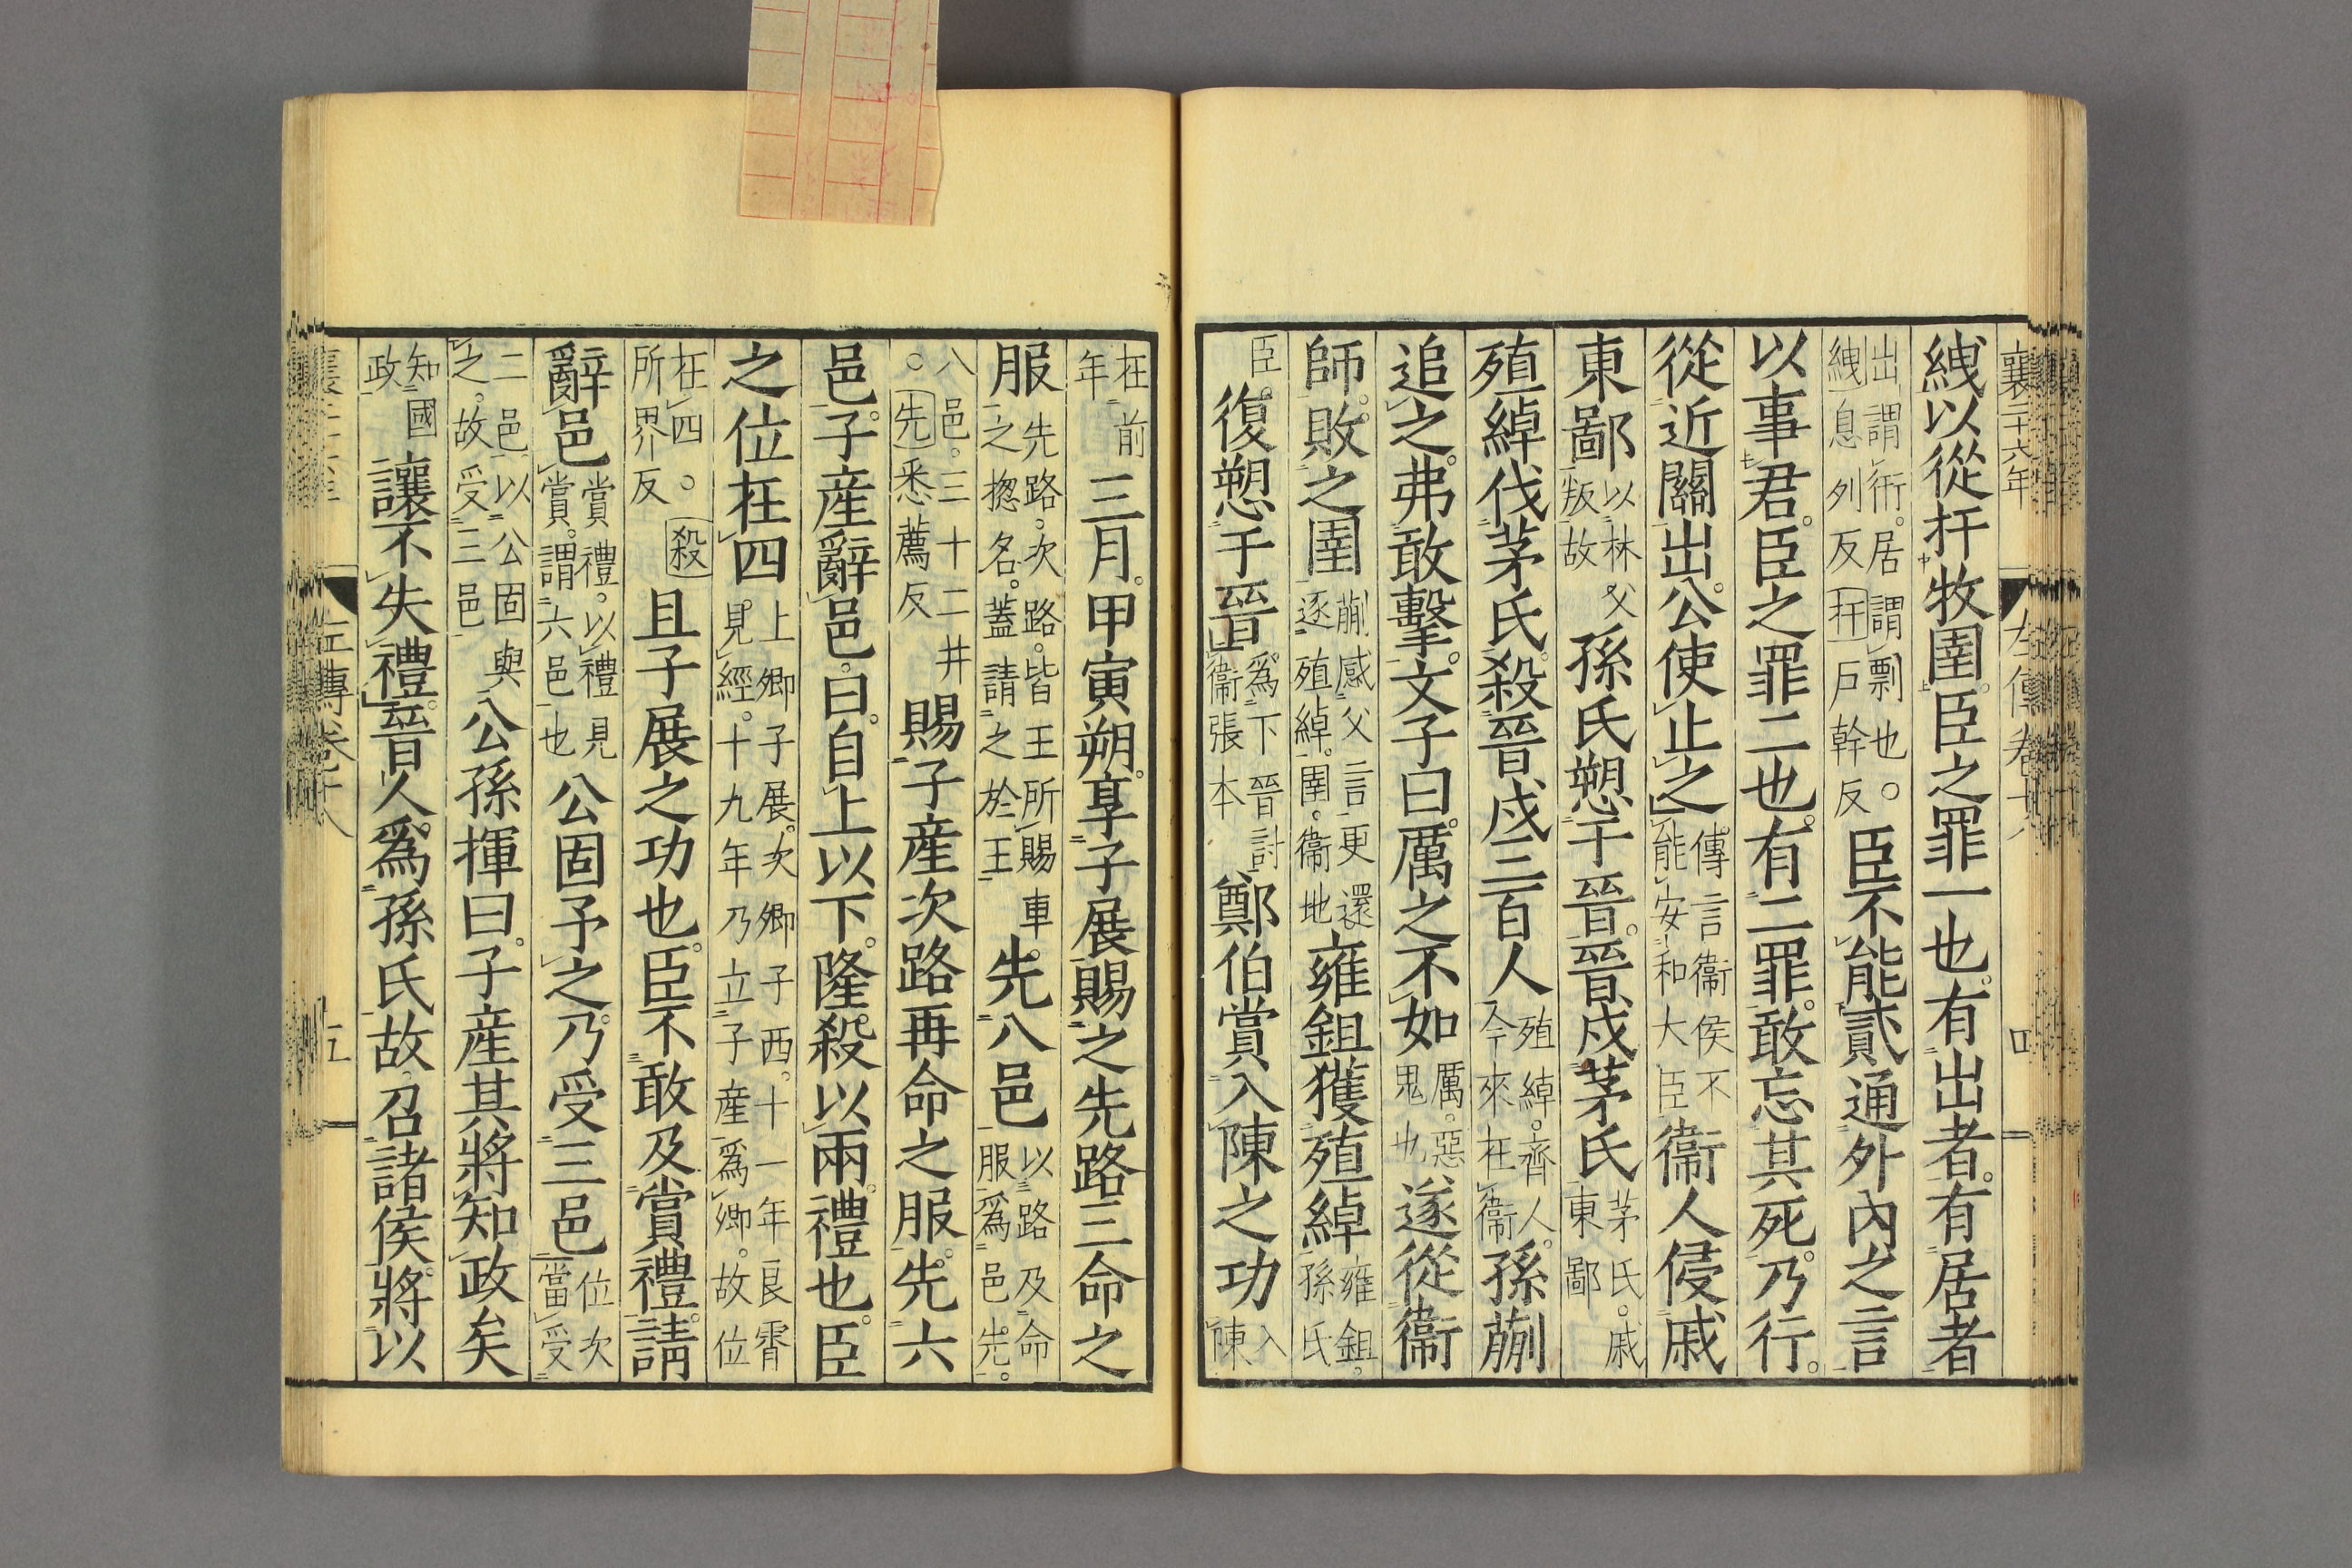 襄二十六年 左傳卷十八 四
絏以從扞牧圉。臣之罪一也。有出者。有居者
出謂衎。居謂剽也。○絏息列反扞戸幹反臣不能貳通外內之言
以事君。臣之罪二也。有二罪。敢忘其死。乃行。
從近關出。公使止之。傳言衞侯不能安和大臣衞人侵戚
東鄙以林父叛故孫氏愬于晉。晉戍茅氏茅氏。戚東鄙
殖綽伐茅氏。殺晉戍三百人殖綽。齊人。今來在衞孫蒯
追之。弗敢擊。文子曰。厲之不如厲。惡鬼也遂從衞
師。敗之圉蒯感父言更還逐殖綽。圉。衞地雍鉏獲殖綽雍鉏。孫氏
臣。復愬于晉爲下晉討衞張本鄭伯賞入陳之功入陳
在前年三月。甲寅朔。享子展賜之先路三命之
服先路。次路。皆王所賜車之揔名。蓋請之於王先八邑以路及命服爲邑先。
八邑。三十二井。○先悉薦反賜子產次路再命之服。先六
邑。子產辭邑。曰。自上以下。隆殺以兩。禮也。臣
之位在四上卿子展。次卿子西。十一年良霄見經。十九年乃立子產爲卿。故位
在四。○殺所界反且子展之功也。臣不敢及賞禮。請
辭邑賞禮。以禮見賞。謂六邑也公固予之。乃受三邑位次當受
二邑以公固與之。故受三邑公孫揮曰。子產其將知政矣
知國政讓不失禮。晉人爲孫氏故。召諸侯。將以
襄二十六年 左傳卷十八 五